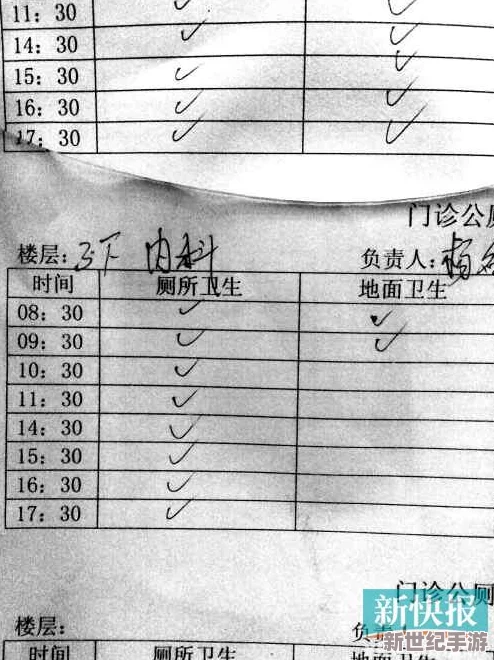 11：30 ✓ ✓
14：30 ✓ ✓
15：30 ✓ ✓
16：30 ✓ ✓
17：30 ✓ ✓
门诊公厕
楼层：3下 内科 负责人：杨
时间 厕所卫生 地面卫生
08：30 ✓ ✓
09：30 ✓ ✓
10：30 ✓
11：30 ✓
14：30 ✓
15：30 ✓
16：30 ✓
17：30 ✓
门诊公厕
新快报
楼层： 负责人
新世纪手游
时间 厕所卫生 地面卫生